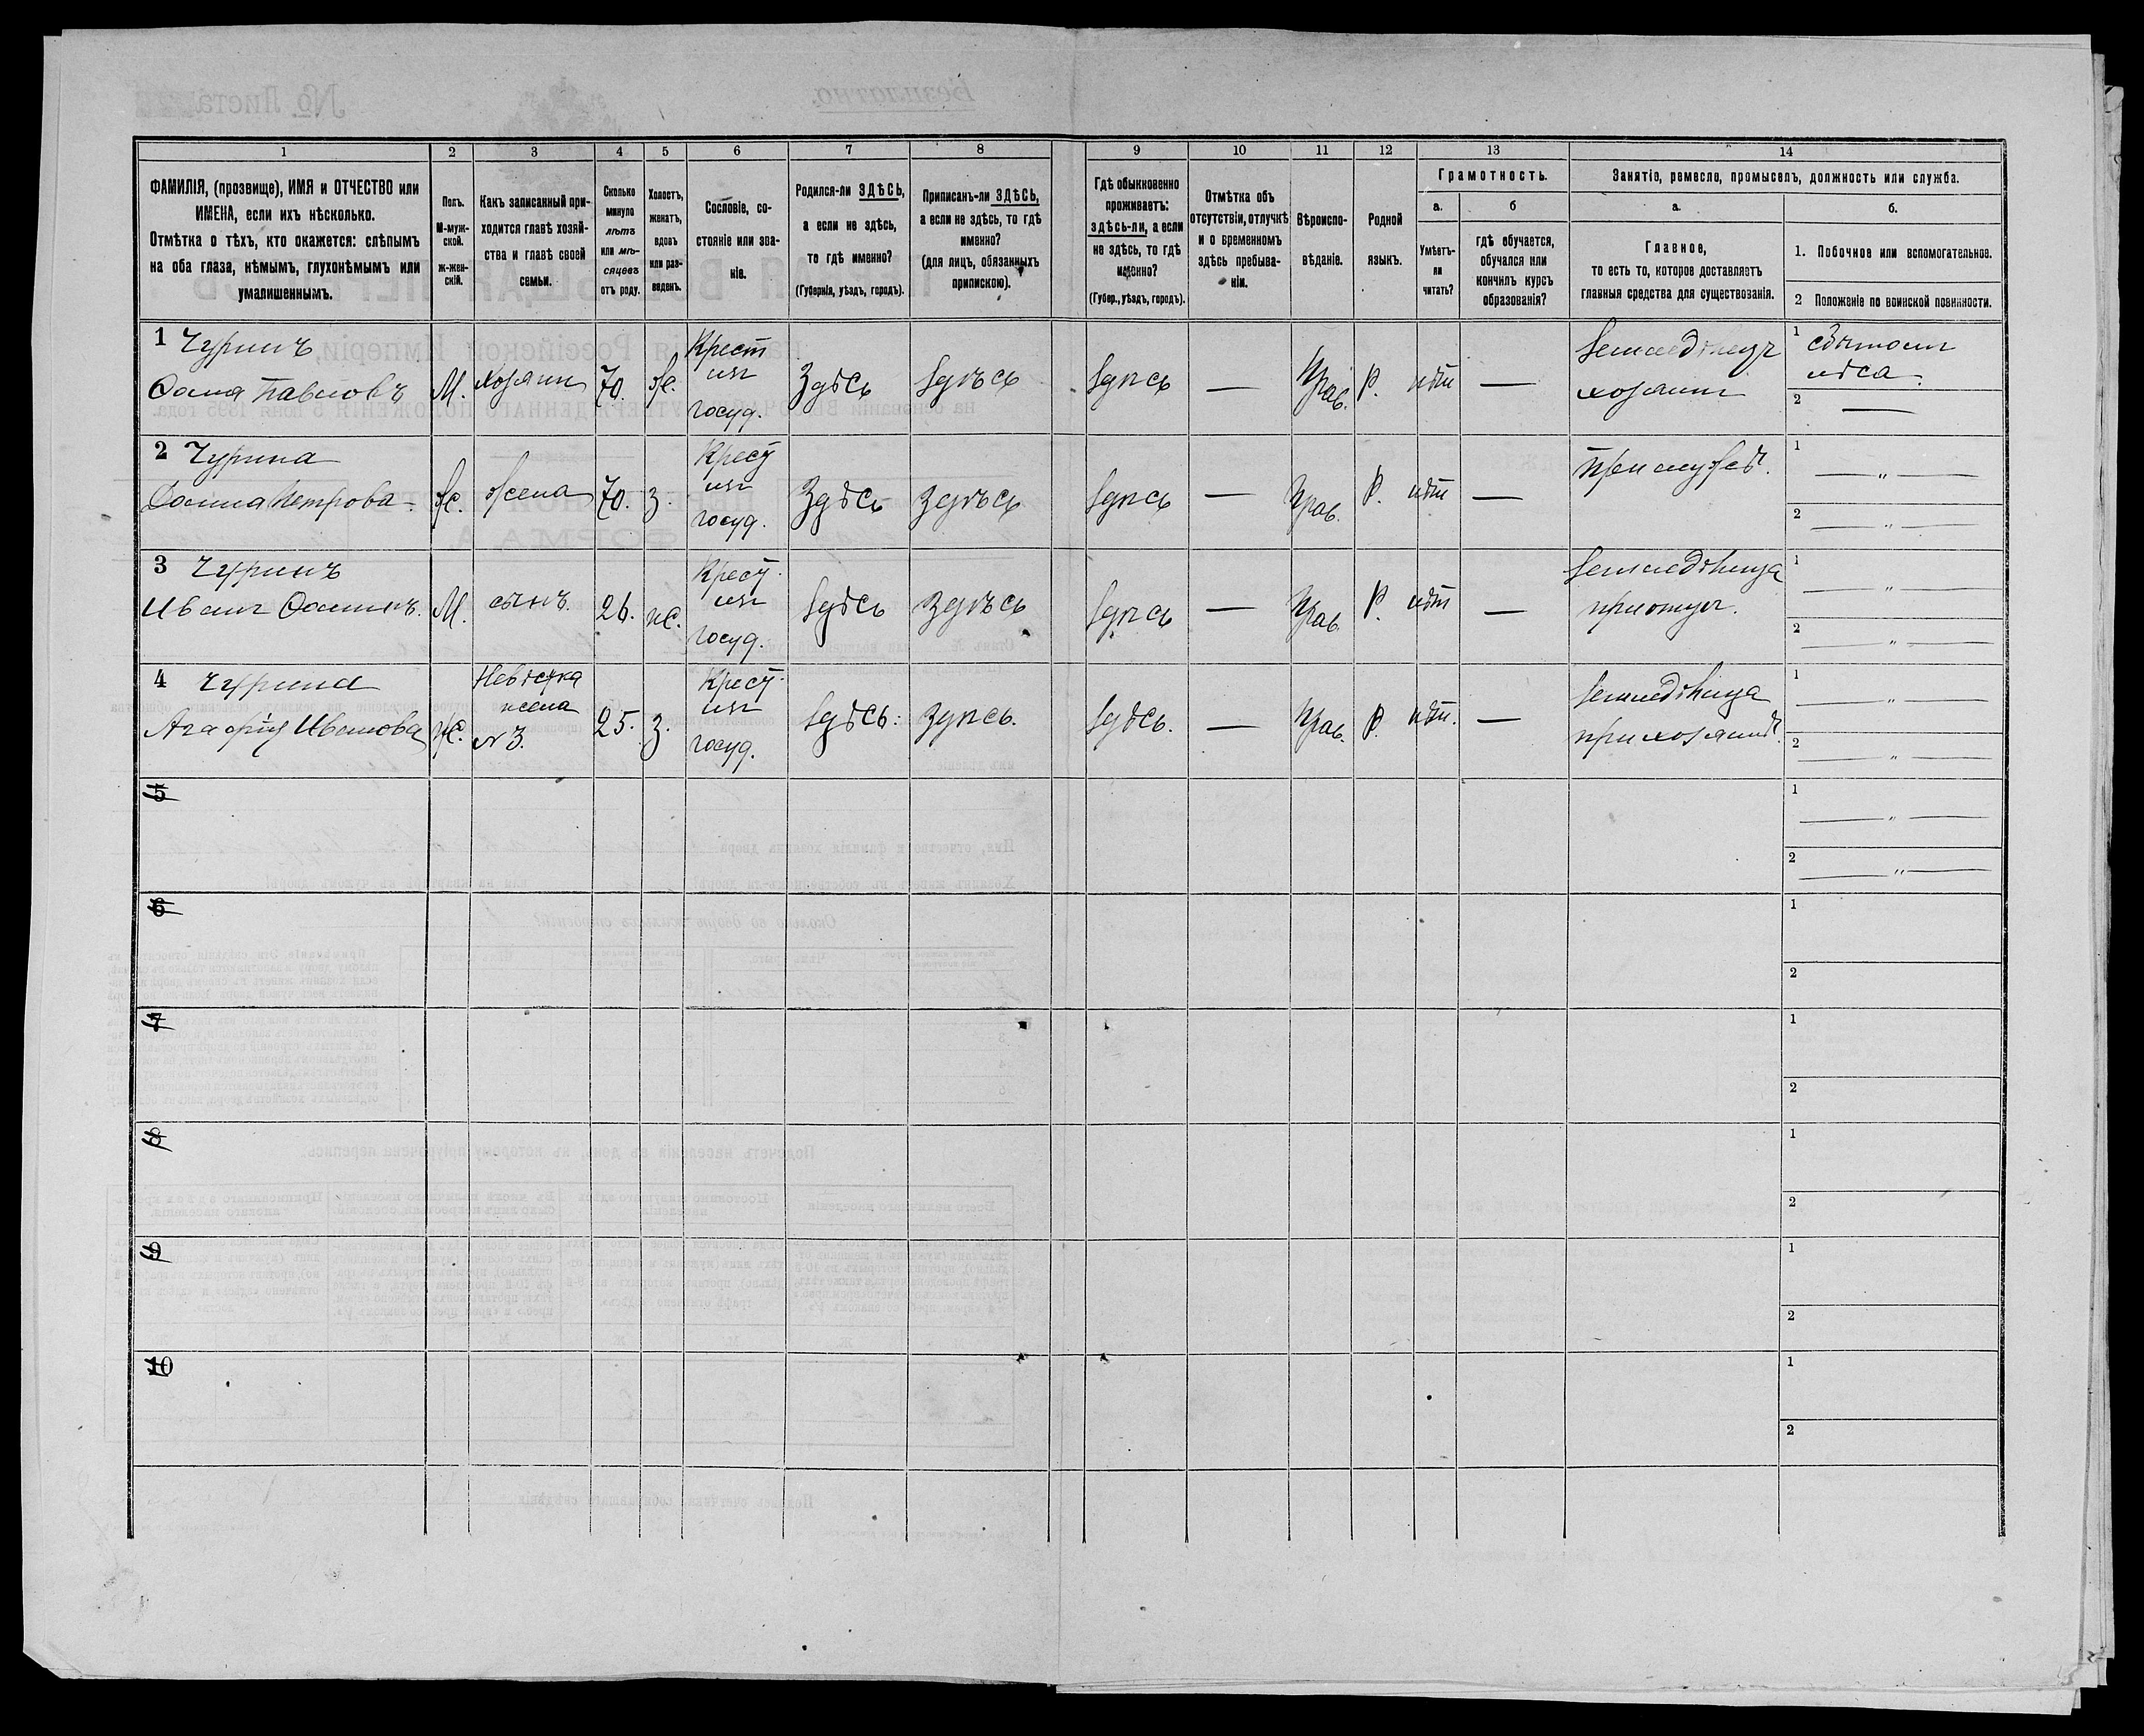 1 2 3 4 5 6 7 8 9 10 11 12 13 14
ФАМИЛІЯ, (прозвище), ИМЯ и ОТЧЕСТВО или
ИМЕНА, если ихъ нѣсколько.
Отмѣтка о тѣхъ, кто окажется: слѣпымъ
на оба глаза, нѣмымъ, глухонѣмымъ или
умалишеннымъ.
Полъ.
М-муж-
ской.
ж-жен-
скій.
Какъ записанный при-
ходится главѣ хозяй-
ства и главѣ своей
семьи.
Сколько
минуло
лѣтъ
или мѣ-
сяцевъ
отъ роду.
Холостъ,
женатъ,
вдовъ
или раз-
веденъ.
Сословіе, со-
стояніе или зва-
ніе.
Родился-ли ЗДѢСЬ,
а если не здѣсь,
то гдѣ именно?
(Губернія, уѣздъ, городъ).
Приписанъ-ли ЗДѢСЬ,
а если не здѣсь, то гдѣ
именно?
(для лицъ, обязанныхъ
припискою).
Гдѣ обыкновенно
проживаетъ:
здѣсь-ли, а если
не здѣсь, то гдѣ
именно?
(Губер., уѣздъ, городъ).
Отмѣтка объ
отсутствіи, отлучкѣ
и о временномъ
здѣсь пребыва-
ніи.
Вѣроиспо-
вѣданіе.
Родной
языкъ.
Грамотность.
а.
Умѣетъ-
ли
читать?
б
гдѣ обучается,
обучался или
кончилъ курсъ
образованія?
Занятіе, ремесло, промыселъ, должность или служба.
а.
Главное,
то есть то, которое доставляетъ
главныя средства для существованія.
б.
1. Побочное или вспомогательное.
2 Положеніе по воинской повинности.
1 Чуринъ
Фома Павловъ
М.
хозяинъ
70.
ж.
Крест
изъ
госуд.
Здѣсь
Здѣсь
Здѣсь
—
Прав.
Р.
нѣт
—
Земледѣлецъ
хозяинъ
1
лѣса.
2 —
2 Чурина
Петрова
ж.
жена
70.
з.
Крест
изъ
госуд.
Здѣсь
Здѣсь
Здѣсь
—
Прав.
Р.
нѣт
—
При мужѣ.
1 — „ —
2 — „ —
3 Чуринъ
Иванъ Фоминъ.
М.
сынъ.
26.
ж.
Крест
изъ
госуд.
Здѣсь
Здѣсь
Здѣсь
—
Прав.
Р.
нѣт
—
Земледѣлица
при отцѣ.
1 — „ —
2 — „ —
4 Чурина
Агафія Иванова
ж.
Невѣстка
жена
№ 3.
25.
з.
Крест
изъ
госуд.
Здѣсь.
Здѣсь.
Здѣсь.
—
Прав.
Р.
нѣт.
—
Земледѣлица
при хозяинѣ.
1 — „ —
2 — „ —
5
1 — „ —
2 — „ —
6
1
2
7
1
2
8
1
2
9
1
2
10
1
2